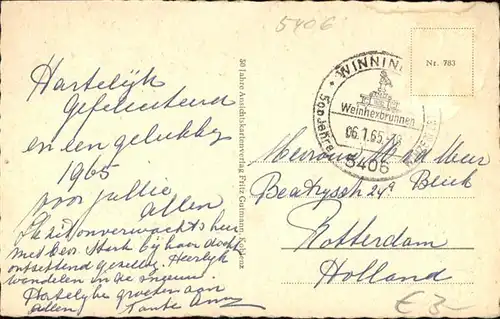 5406
Hartelijk
gefeliciteerd
en een gelukkig
1965
voor jullie
allen
Ik zit onverwachts hier
met bev. Henk bij haar dochter
ontzettend gezellig. Heerlijk
wandelen in de sneeuw.
Hartelijke groeten aan
allen Tante Anny
50 Jahre Ansichtskartenverlag Fritz Gutmann, Koblenz
WINNIN
Weinhexbrunnen
06.1.65-18
5406
Nr. 783
Mevrouw
Beatrysstr 24a
Rotterdam
Holland
€ 3-